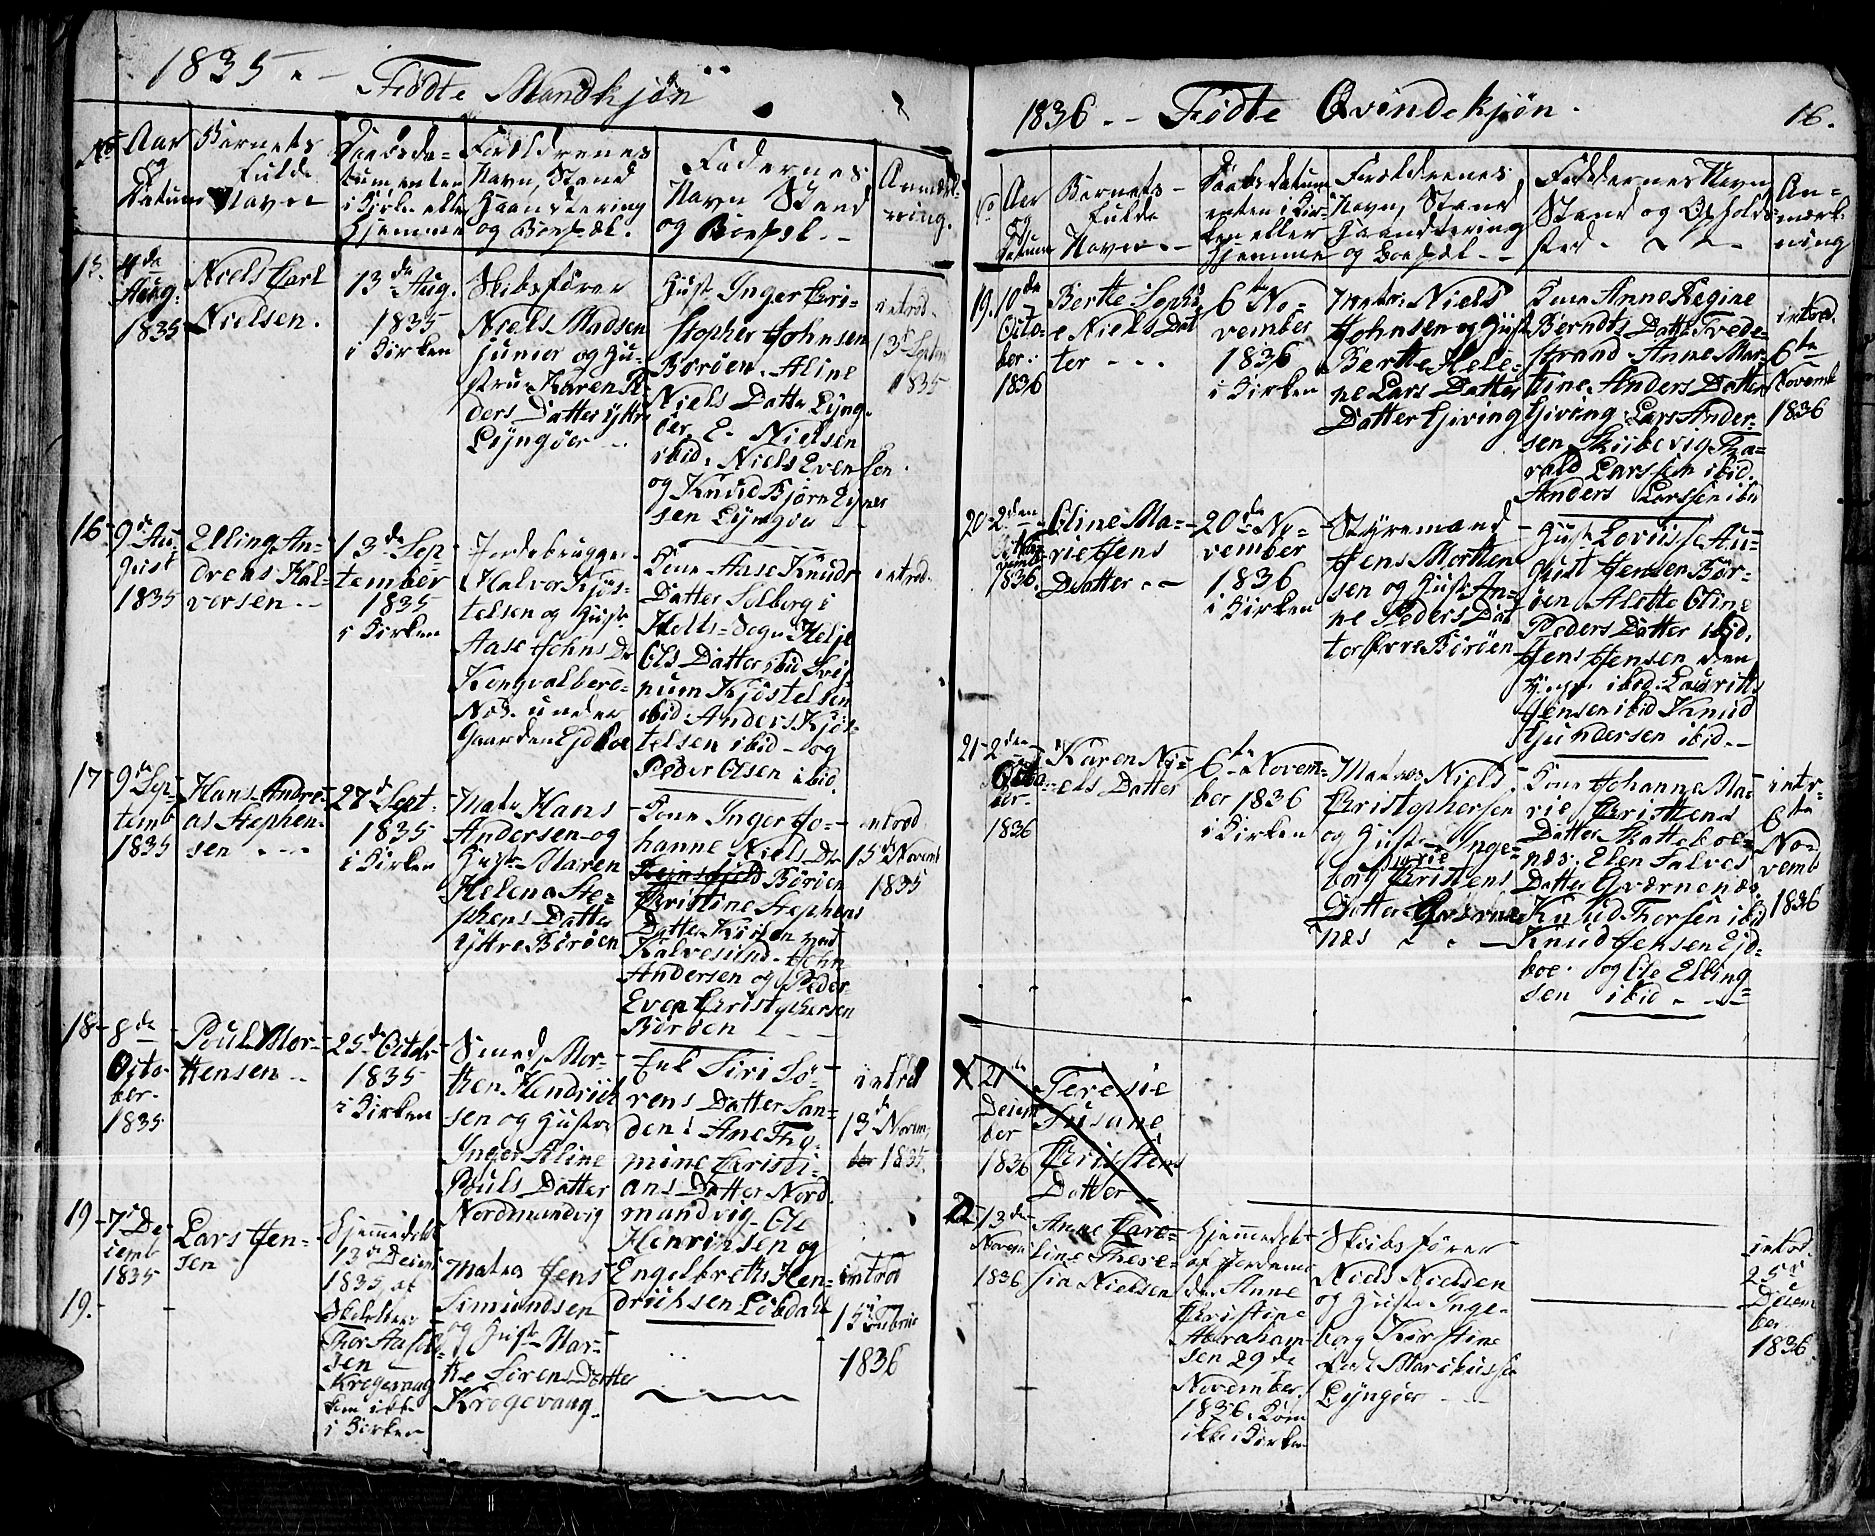 1835. -
Fødte Mandkjøn
No
Aar
og
Datum
Barnets
fulde
Navn
Daabsda=
tum enten
i Kirke eller
Hjemme
Forældrenes
Navn, Stand
Haandtering
og Bopæl.
Faddernes
Navn Stand
og Bopæl. -
Anmærk-
ning.
15.
4de
Aug.
1835
Niels Carl
Nielsen.
13de Aug.
1835
i Kirken
Skibsfører
Niels Madsen
junior og Hu-
stru Karen
ders Datter Yttre
Lyngøer
Hust. Inger Cri-
stopher Johnsen
Borøen. Aline
Niels Datter Lyng-
øer, E. Nielsen
ibid. Niels Evensen
og Knud Bjørn
sen Lyngøer
introd.
13 Septbr
1835
16
9de Au-
gust
1835
Elling An=
dreas Hal-
versen. -
13de Sep-
tember
1835
i Kirken
Jordebruger
Halvor Kjøs-
telsen og Hust.
Aase Johns Dr
Kongvalbero=
Nød. under
Gaarden Ejdboe
Kone Aase Knuds
Datter Solberg i
Holts Sogn Helje
Ols Datter ibid
num Kjøstelsen
ibid. Anders Kjøs-
telsen ibid - og
Peder Olsen ibid
introd.
17
9de Sep-
temb
1835
Hans Andre-
as Stephen-
sen . - -
27de Sept.
1835
i Kirken
Matr. Hans
Andersen og
Hust. Maren
Helena Ste-
phens Datter
Yttre Borøen
Kone Inger Jo-
hanne Niels Dr
Borøen
Christine Stephens
Datter
Kalvesund. John
Andersen og Peder
Even Christophersen
Borøen
introd.
15de Novemb
1835
18-
8de
Octo-
ber.
1835
Poul Mor-
tensen -
25de Octobr
1835
i Kirken
Smed, Mor-
ten Hendrich
sen og Hustr.
Inger Aline
Pouls Datter
Nordmundvig
Enk Siri Sø-
rens Datter San-
den i Ane Thy-
mine Christi-
ans Datter Nord
mundvig. Ole
Henrichsen og
Engelbreth Hen-
drichsen Løbdahl
introd
13de Novem-
ber 1835.
19
7de De-
cemb
1835
Lars Jen-
sen
Hjemmedøbt
13de Decem
1835 af
Skoleholder
Thor Aasold-
sen
Kregevaag
kom ikke
i Kirken
Matros Jens
Simundsen
og Hust. Mar-
the Sørens Datter
Krogevaag.
introd
15de Februar
1836
19.
1836. -
Fødte Qvindekjøn.
16.
No
Aar
og
Datum
Barnets
fulde
Navn. -
Daabsdatum
enten i Kir-
ken eller
Hjemme
Forældrenes
Navn, Stand
Haandtering
og Bopæl -
Faddernes Navn
Stand og Opholds
sted -
An=
mærk-
ning
19.
10de
Octo-
ber.
1836
Berthe Sophi
e Niels Dat
ter - - -
6te No-
vember
1836
i Kirken
Matr. Niels
Johnsen og Hust
Berthe Hele-
ne Lars Datter
Datter Gjeving
Kone Anne Regine
Berndts Datter Frede-
strand. Anne Mar-
tine Anders Datter
Gjeving. Lars Ander-
sen Skiibevig Tha-
rald Larssen ibid.
Anders Larssen ibid
introd.
6te
Novemb
1836
20-
2den
1836.
Oline Ma-
rie Jens
Datter. -
20de No-
vember
1836
i Kirken
Styrmand
Jens Morthen
sen og Hust. An-
ne Peders Dat
ter Borøen
Hust. Lovisse Au-
gust Jensen Bør-
øen Alette Oline
Peders Datter ibid.
Jens Jensen den
ibid. Lauritz
Jensen ibid Knud
Gundersen ibid. -
21-
2den
Octo-
ber-
1836
Karen Ni-
els Datter
6te Novem-
ber 1836
i Kirken
Matros Niels
Christophersen
og Hust. Inge-
borg Marie Christens
Datter Qværne
næs - -
Kone Johanne Ma-
rie Christens
Datter Katteboe-
næs. Elen Salves
Datter Qværnenæs
Knud Thorsen ibid
Knud Jensen Ejd-
boe. og Ole Elling
sen ibid. - -
intr-
6te
No-
vemb
1836
21de
Decem
ber
1836
Teresie
Susane
Christens
Datter
13de
Novem
1836
Anne Caro-
line There-
sia Nielsen
Hjemmedøbt
af Jordemo
der Anne
Christine
Abraham-
sen 29de
November.
1836. Kom
ikke i Kirken
Skibsfører
Niels Nielsen
og Hust. Inge-
borg Kirstine
Marcussen
Lyngøer
introd.
25de
Decem
ber
1836.